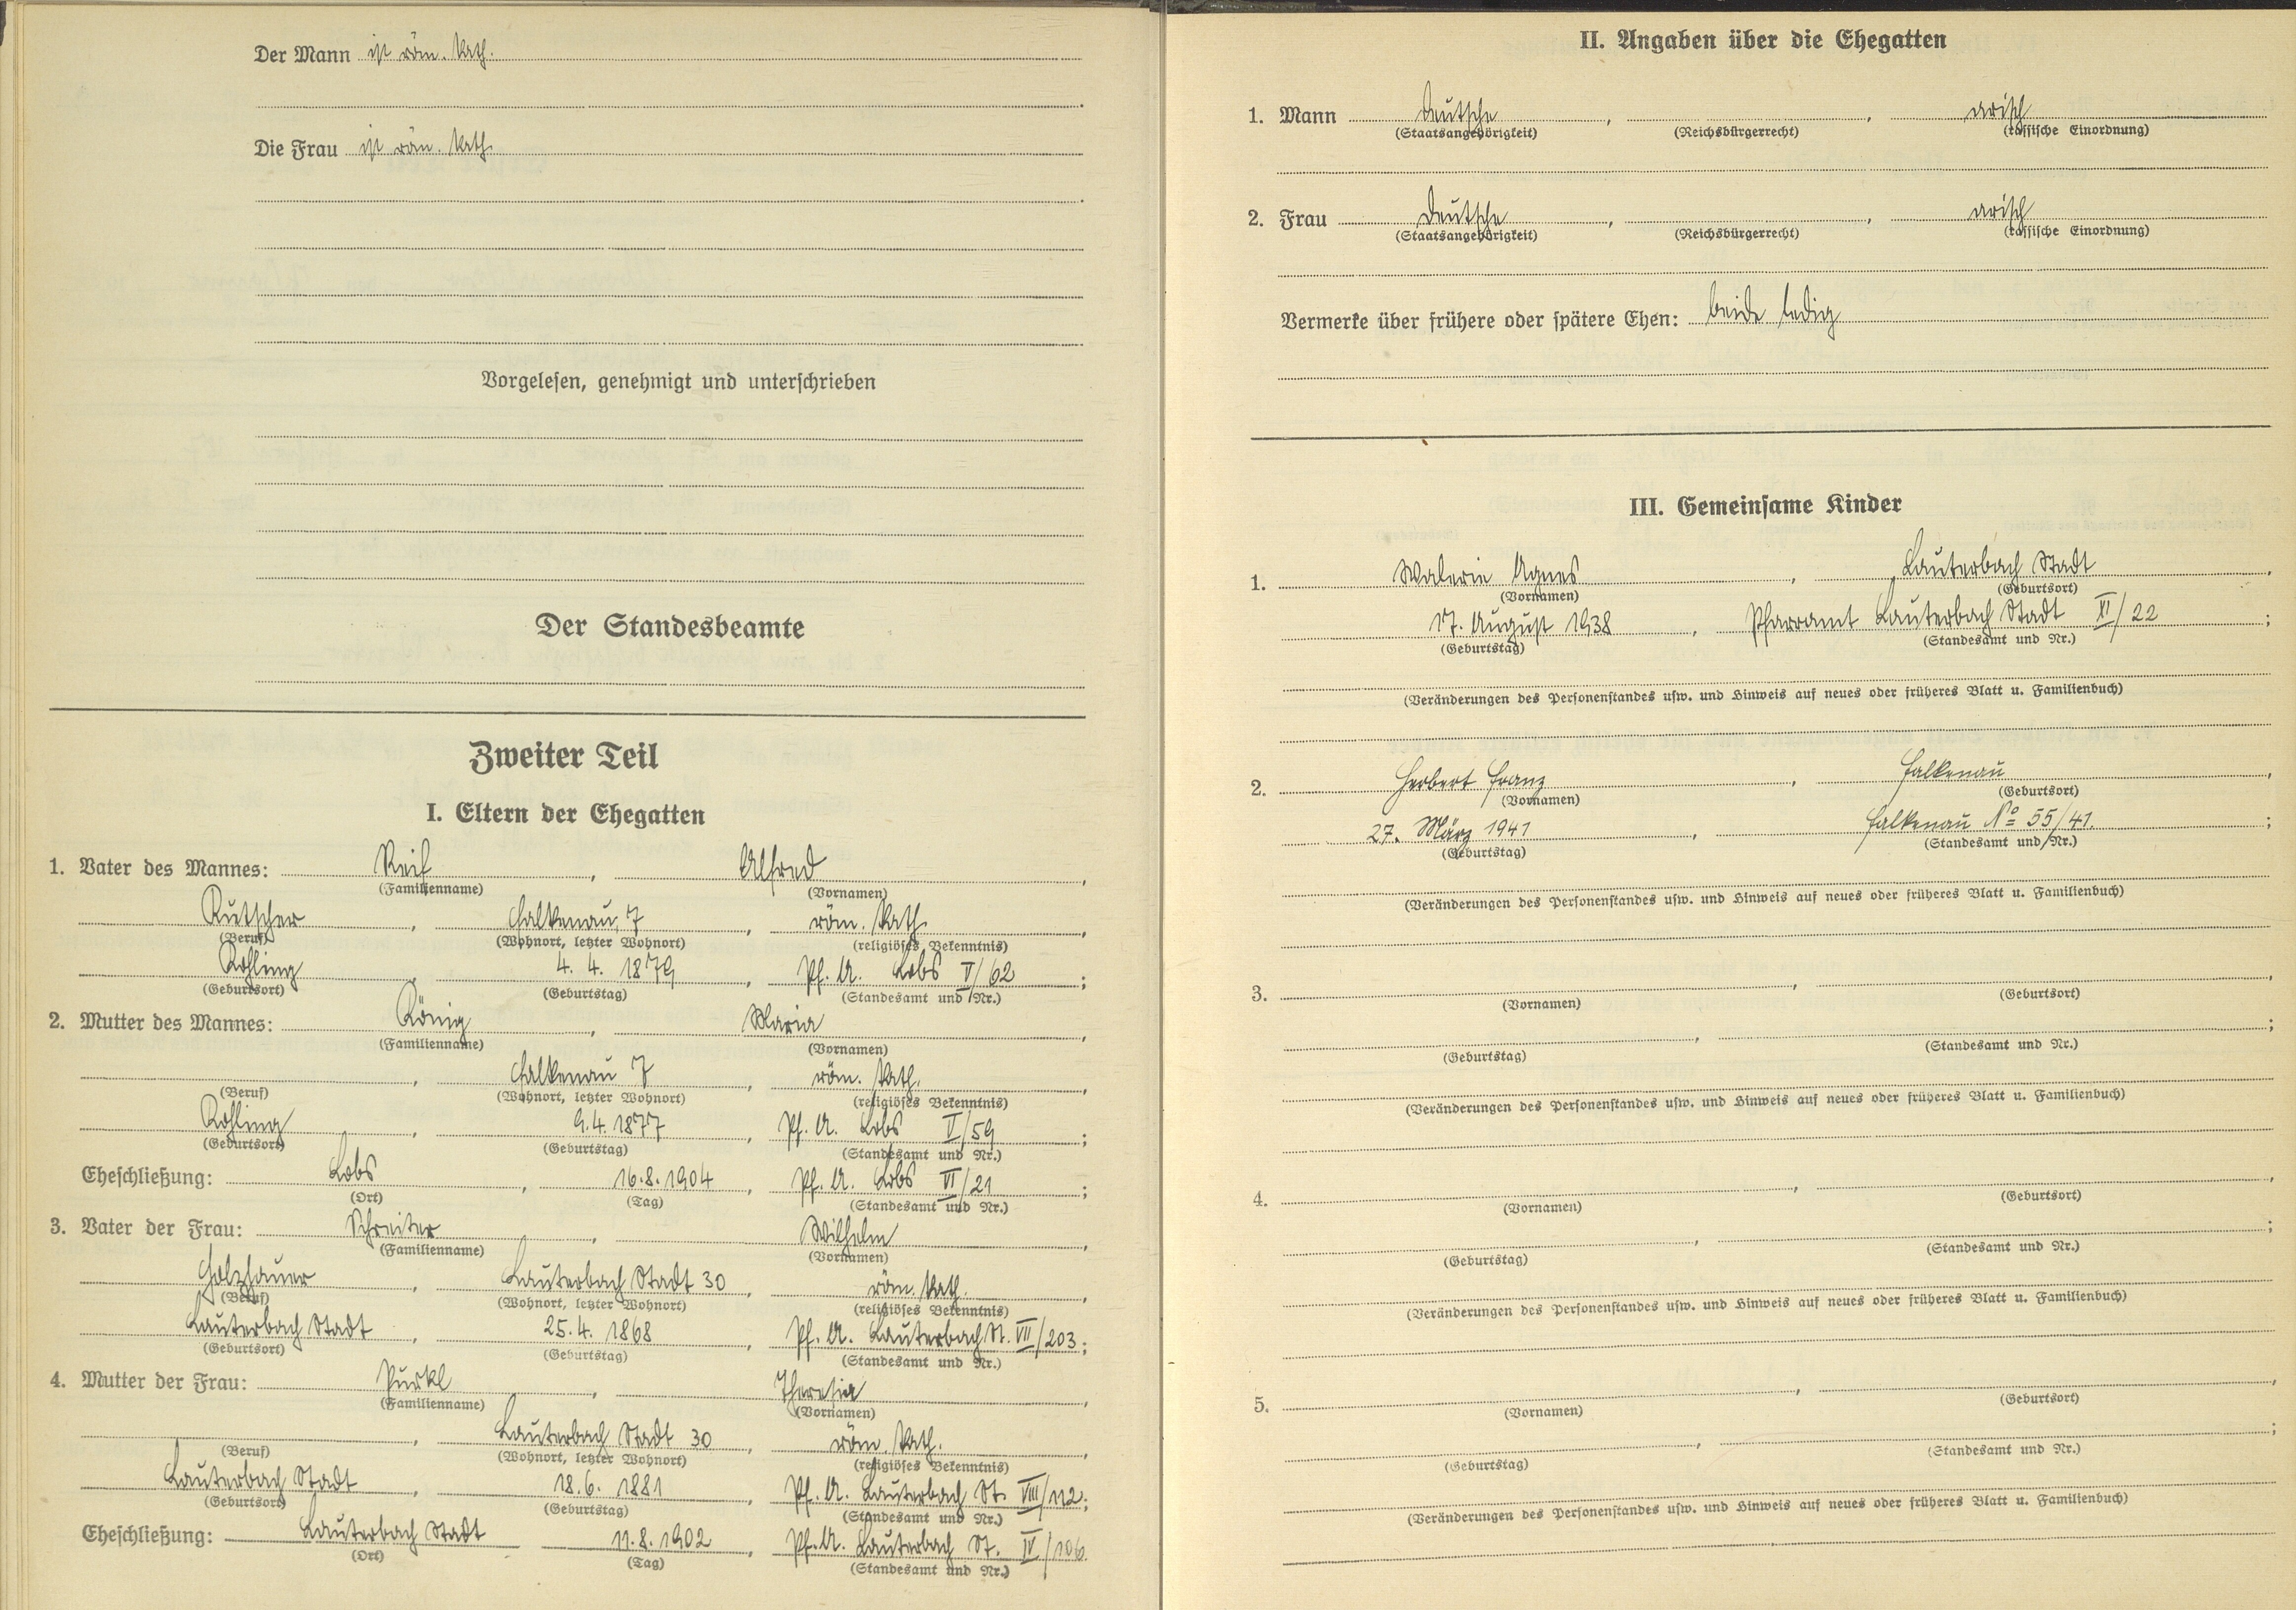 Der Mann ist röm. kath.
Die Frau ist röm. kath.
Vorgelesen, genehmigt und unterschrieben
Der Standesbeamte
Zweiter Teil
I. Eltern der Ehegatten
1. Vater des Mannes: Reif, Alfred,
(Familienname) (Vornamen)
Kutscher, Falkenau, 7, röm. kath.,
(Beruf) (Wohnort, letzter Wohnort) (religiöses Bekenntnis)
Kohling, 4. 4. 1879, Pf. A. Lobs V/62;
(Geburtsort) (Geburtstag) (Standesamt und Nr.)
2. Mutter des Mannes: König, Maria,
(Familienname) (Vornamen)
, Falkenau 7, röm. kath.,
(Beruf) (Wohnort, letzter Wohnort) (religiöses Bekenntnis)
Kohling, 9.4.1877, Pf. A. Lobs V/59;
(Geburtsort) (Geburtstag) (Standesamt und Nr.)
Eheschließung: Lobs, 16.8.1904, Pf. A. Lobs VI/21;
(Ort) (Tag) (Standesamt und Nr.)
3. Vater der Frau: Schreiter, Wilhelm,
(Familienname) (Vornamen)
Holzhauer, Lauterbach Stadt 30, röm. kath.,
(Beruf) (Wohnort, letzter Wohnort) (religiöses Bekenntnis)
Lauterbach Stadt, 25. 4. 1868, Pf. A. Lauterbach St. VII/203;
(Geburtsort) (Geburtstag) (Standesamt und Nr.)
4. Mutter der Frau: Purkl, Theresia,
(Familienname) (Vornamen)
, Lauterbach Stadt 30, röm. kath.,
(Beruf) (Wohnort, letzter Wohnort) (religiöses Bekenntnis)
Lauterbach Stadt, 18. 6. 1881, Pf. A. Lauterbach St. VIII/112;
(Geburtsort) (Geburtstag) (Standesamt und Nr.)
Eheschließung: Lauterbach Stadt 11.8.1902, Pf. A. Lauterbach St. IV/106
(Ort) (Tag) (Standesamt und Nr.)
II. Angaben über die Ehegatten
1. Mann Deutsche, , arisch
(Staatsangehörigkeit) (Reichsbürgerrecht) (rassische Einordnung)
2. Frau Deutsche, , arisch
(Staatsangehörigkeit) (Reichsbürgerrecht) (rassische Einordnung)
Vermerke über frühere oder spätere Ehen: beide ledig
III. Gemeinsame Kinder
1. Walerie Agnes, Lauterbach Stadt,
(Vornamen) (Geburtsort)
17. August 1938, Pfarramt Lauterbach Stadt XI/22;
(Geburtstag) (Standesamt und Nr.)
(Veränderungen des Personenstandes usw. und Hinweis auf neues oder früheres Blatt u. Familienbuch)
2. Herbert Franz, Falkenau,
(Vornamen) (Geburtsort)
27. März 1941, Falkenau No 55/41.;
(Geburtstag) (Standesamt und Nr.)
(Veränderungen des Personenstandes usw. und Hinweis auf neues oder früheres Blatt u. Familienbuch)
3. , ,
(Vornamen) (Geburtsort)
, ;
(Geburtstag) (Standesamt und Nr.)
(Veränderungen des Personenstandes usw. und Hinweis auf neues oder früheres Blatt u. Familienbuch)
4. , ,
(Vornamen) (Geburtsort)
, ;
(Geburtstag) (Standesamt und Nr.)
(Veränderungen des Personenstandes usw. und Hinweis auf neues oder früheres Blatt u. Familienbuch)
5. , ,
(Vornamen) (Geburtsort)
, ;
(Geburtstag) (Standesamt und Nr.)
(Veränderungen des Personenstandes usw. und Hinweis auf neues oder früheres Blatt u. Familienbuch)